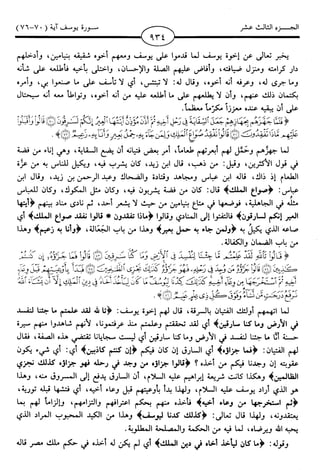 الجـــزء الثالث عشر
سـورة يوسف آية (٧٠-٧٦)
٩٣٤
يخبر تعالى عن إخوة يوسف لما قدموا على يوسف ومعهم أخوه شقيقه بنيامين، وأدخلهم
دار كرامته ومنزل ضيافته، وأفاض عليهم الصلة والإحسان، واختلى بأخيه فأطلعه على شأنه
وما جرى له، وعرفه أنه أخوه، وقال له: لا تبتئس، أي لا تأسف على ما صنعوا بي، وأمره
بكتمان ذلك عنهم، وأن لا يطلعهم على ما أطلعه عليه من أنه أخوه، وتواطأ معه أنه سيحتال
على أن يبقيه عنده معززاً مكرّماً معظماً.
لما جهّزهم وحمّل لهم أبعرتهم طعاماً، أمر بعض فتيانه أن يضع السقاية، وهي إناء من فضة
في قول الأكثرين، وقيل: من ذهب، قال ابن زيد، كان يشرب فيه، ويكيل للناس به من عزّة
الطعام إذ ذاك، قاله ابن عباس ومجاهد وقتادة والضحاك وعبد الرحمن بن زيد، وقال ابن
عباس: ﴿صواع الملك﴾ قال: كان من فضة يشربون فيه، وكان مثل المكوك، وكان للعباس
مثله في الجاهلية، فوضعها في متاع بنيامين من حيث لا يشعر أحد، ثم نادى مناد بينهم ﴿أيتها
العير إنكم لسارقون﴾ فالتفتوا إلى المنادي وقالوا ﴿ماذا تفقدون * قالوا نفقد صواع الملك﴾ أي
صاعه الذي يكيل به ﴿ولمن جاء به حمل بعير﴾ وهذا من باب الجعالة، ﴿وأنا به زعيم﴾ وهذا
من باب الضمان والكفالة.
لما اتهمهم أولئك الفتيان بالسرقة، قال لهم إخوة يوسف: ﴿تا لله لقد علمتم ما جئنا لنفسد
في الأرض وما كنا سارقين﴾ أي لقد تحققتم وعلمتم منذ عرفتمونا، لأنهم شاهدوا منهم سيرة
حسنة أنّا ما جئنا لنفسد في الأرض وما كنا سارقين أي ليست سجايانا تقتضي هذه الصفة، فقال
لهم الفتيان: ﴿فما جزاؤه﴾ أي السارق إن كان فيكم ﴿إن كنتم كاذبين﴾ أي: أي شيء يكون
عقوبته إن وجدنا فيكم من أخذه؟ ﴿قالوا جزاؤه من وجد في رحله فهو جزاؤه كذلك نجزي
الظالمين﴾ وهكذا كانت شريعة إبراهيم عليه السلام، أن السارق يدفع إلى المسروق منه، وهذا
هو الذي أراد يوسف عليه السلام، ولهذا بدأ بأوعيتهم قبل وعاء أخيه، أي فتشها قبله تورية،
﴿ثم استخرجها من وعاء أخيه﴾ فأخذه منهم بحكم اعترافهم والتزامهم، وإلزاماً لهم بما
يعتقدونه، ولهذا قال تعالى: ﴿كذلك كدنا ليوسف﴾ وهذا من الكيد المحبوب المراد الذي
يحبه الله ويرضاه، لما فيه من الحكمة والمصلحة المطلوبة.
وقوله: ﴿ما كان ليأخذ أخاه في دين الملك﴾ أي لم يكن له أخذه في حكم ملك مصر قاله